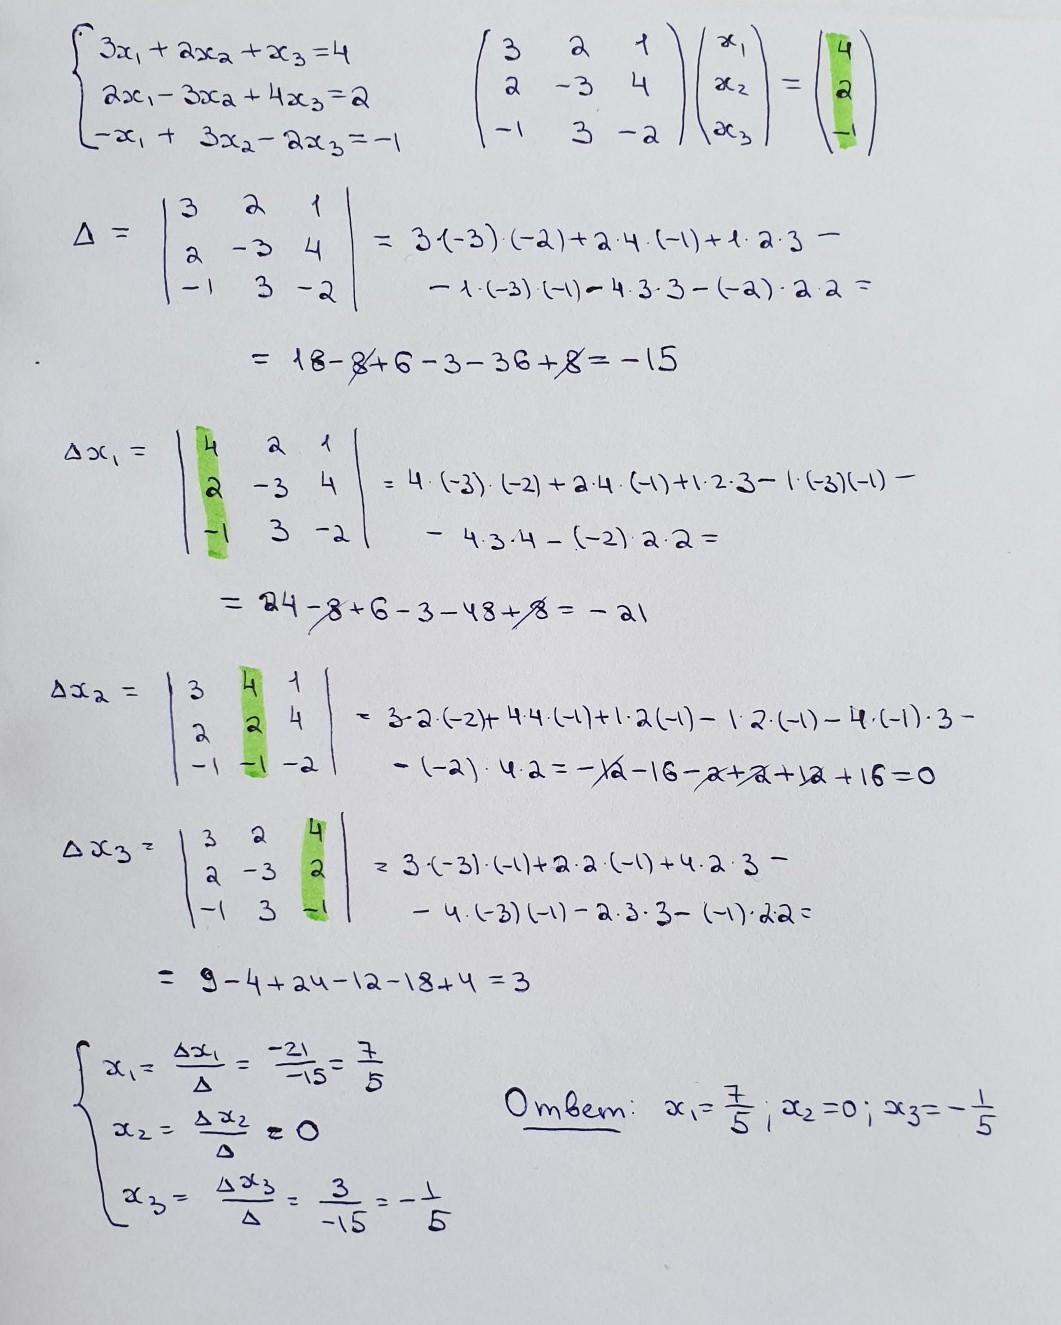 3x₁ + 2x₂ + x₃ = 4
2x₁ - 3x₂ + 4x₃ = 2
-x₁ + 3x₂ - 2x₃ = -1
3 2 1 x₁ 4
2 -3 4 x₂ = 2
-1 3 -2 x₃ -1
Δ = | 3 2 1 | = 3·(-3)·(-2) + 2·4·(-1) + 1·2·3 -
| 2 -3 4 |
| -1 3 -2 | - 1·(-3)·(-1) - 4·3·3 - (-2)·2·2 =
= 18 - 8 + 6 - 3 - 36 + 8 = -15
Δx₁ = | 4 2 1 |
| 2 -3 4 | = 4·(-3)·(-2) + 2·4·(-1) + 1·2·3 - 1·(-3)(-1) -
| -1 3 -2 | - 4·3·4 - (-2)·2·2 =
= 24 - 8 + 6 - 3 - 48 + 8 = -21
Δx₂ = | 3 4 1 |
| 2 2 4 | = 3·2·(-2) + 4·4·(-1) + 1·2(-1) - 1·2·(-1) - 4·(-1)·3 -
| -1 -1 -2 | - (-2)·4·2 = -12 - 16 - 2 + 2 + 12 + 16 = 0
Δx₃ = | 3 2 4 |
| 2 -3 2 | = 3·(-3)·(-1) + 2·2·(-1) + 4·2·3 -
| -1 3 -1 | - 4·(-3)(-1) - 2·3·3 - (-1)·2·2 =
= 9 - 4 + 24 - 12 - 18 + 4 = 3
x₁ = Δx₁/Δ = -21/-15 = 7/5
x₂ = Δx₂/Δ = 0
x₃ = Δx₃/Δ = 3/-15 = -1/5
Ответ: x₁ = 7/5; x₂ = 0; x₃ = -1/5